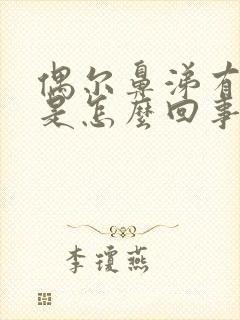 偶尔鼻涕有
是怎麼回事
李琼燕